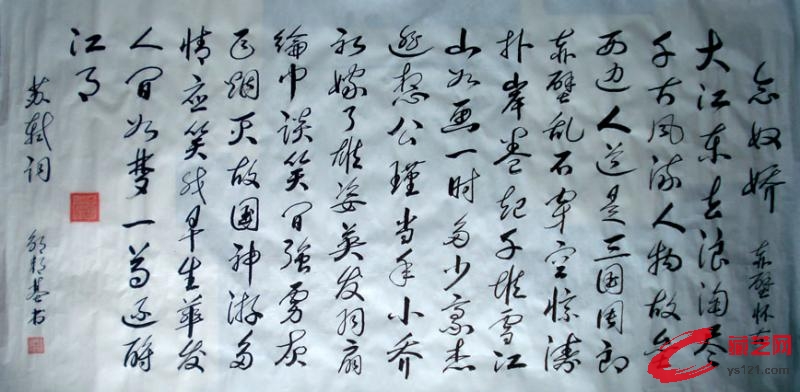 念奴娇 赤壁怀古
大江东去浪淘尽
千古风流人物故垒
西边人道是三国周郎
赤壁乱石穿空惊涛
拍岸卷起千堆雪江
山如画一时多少豪杰
遥想公瑾当年小乔
初嫁了雄姿英发羽扇
纶巾谈笑间强虏灰
飞烟灭故国神游多
情应笑我早生华发
人间如梦一尊还酹
江月
苏轼词
基书
艺网
ys121.com